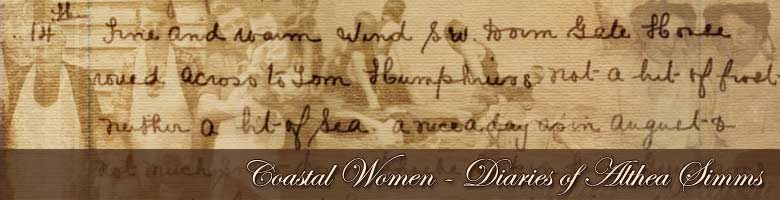 14th Fine and warm Wind S W. Down Gate House
roued across to Tom Humphries Not a bit of frost
neither a bit of Sea. a nice a day as in August &
not much
Coastal Women - Diaries of Althea Simms